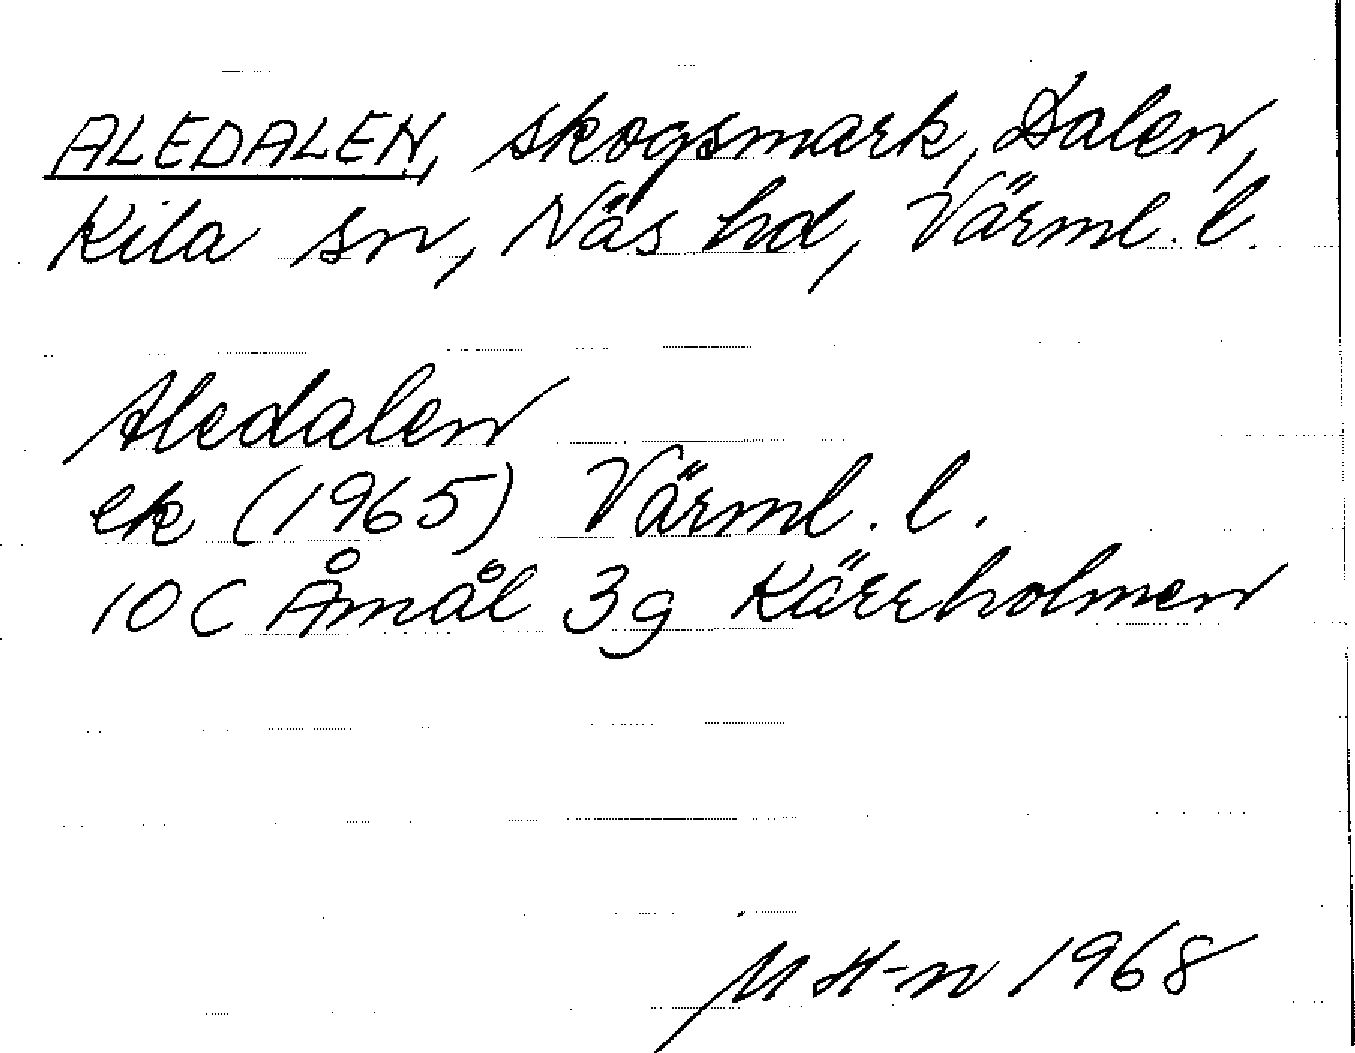 ALEDALEN, skogsmark, Dalen,
Kila sn, Näs hd, Värml. l.
Aledalen
ek (1965) Värml. l.
10 C Åmål 3g Kärrholmen
M H-n 1968